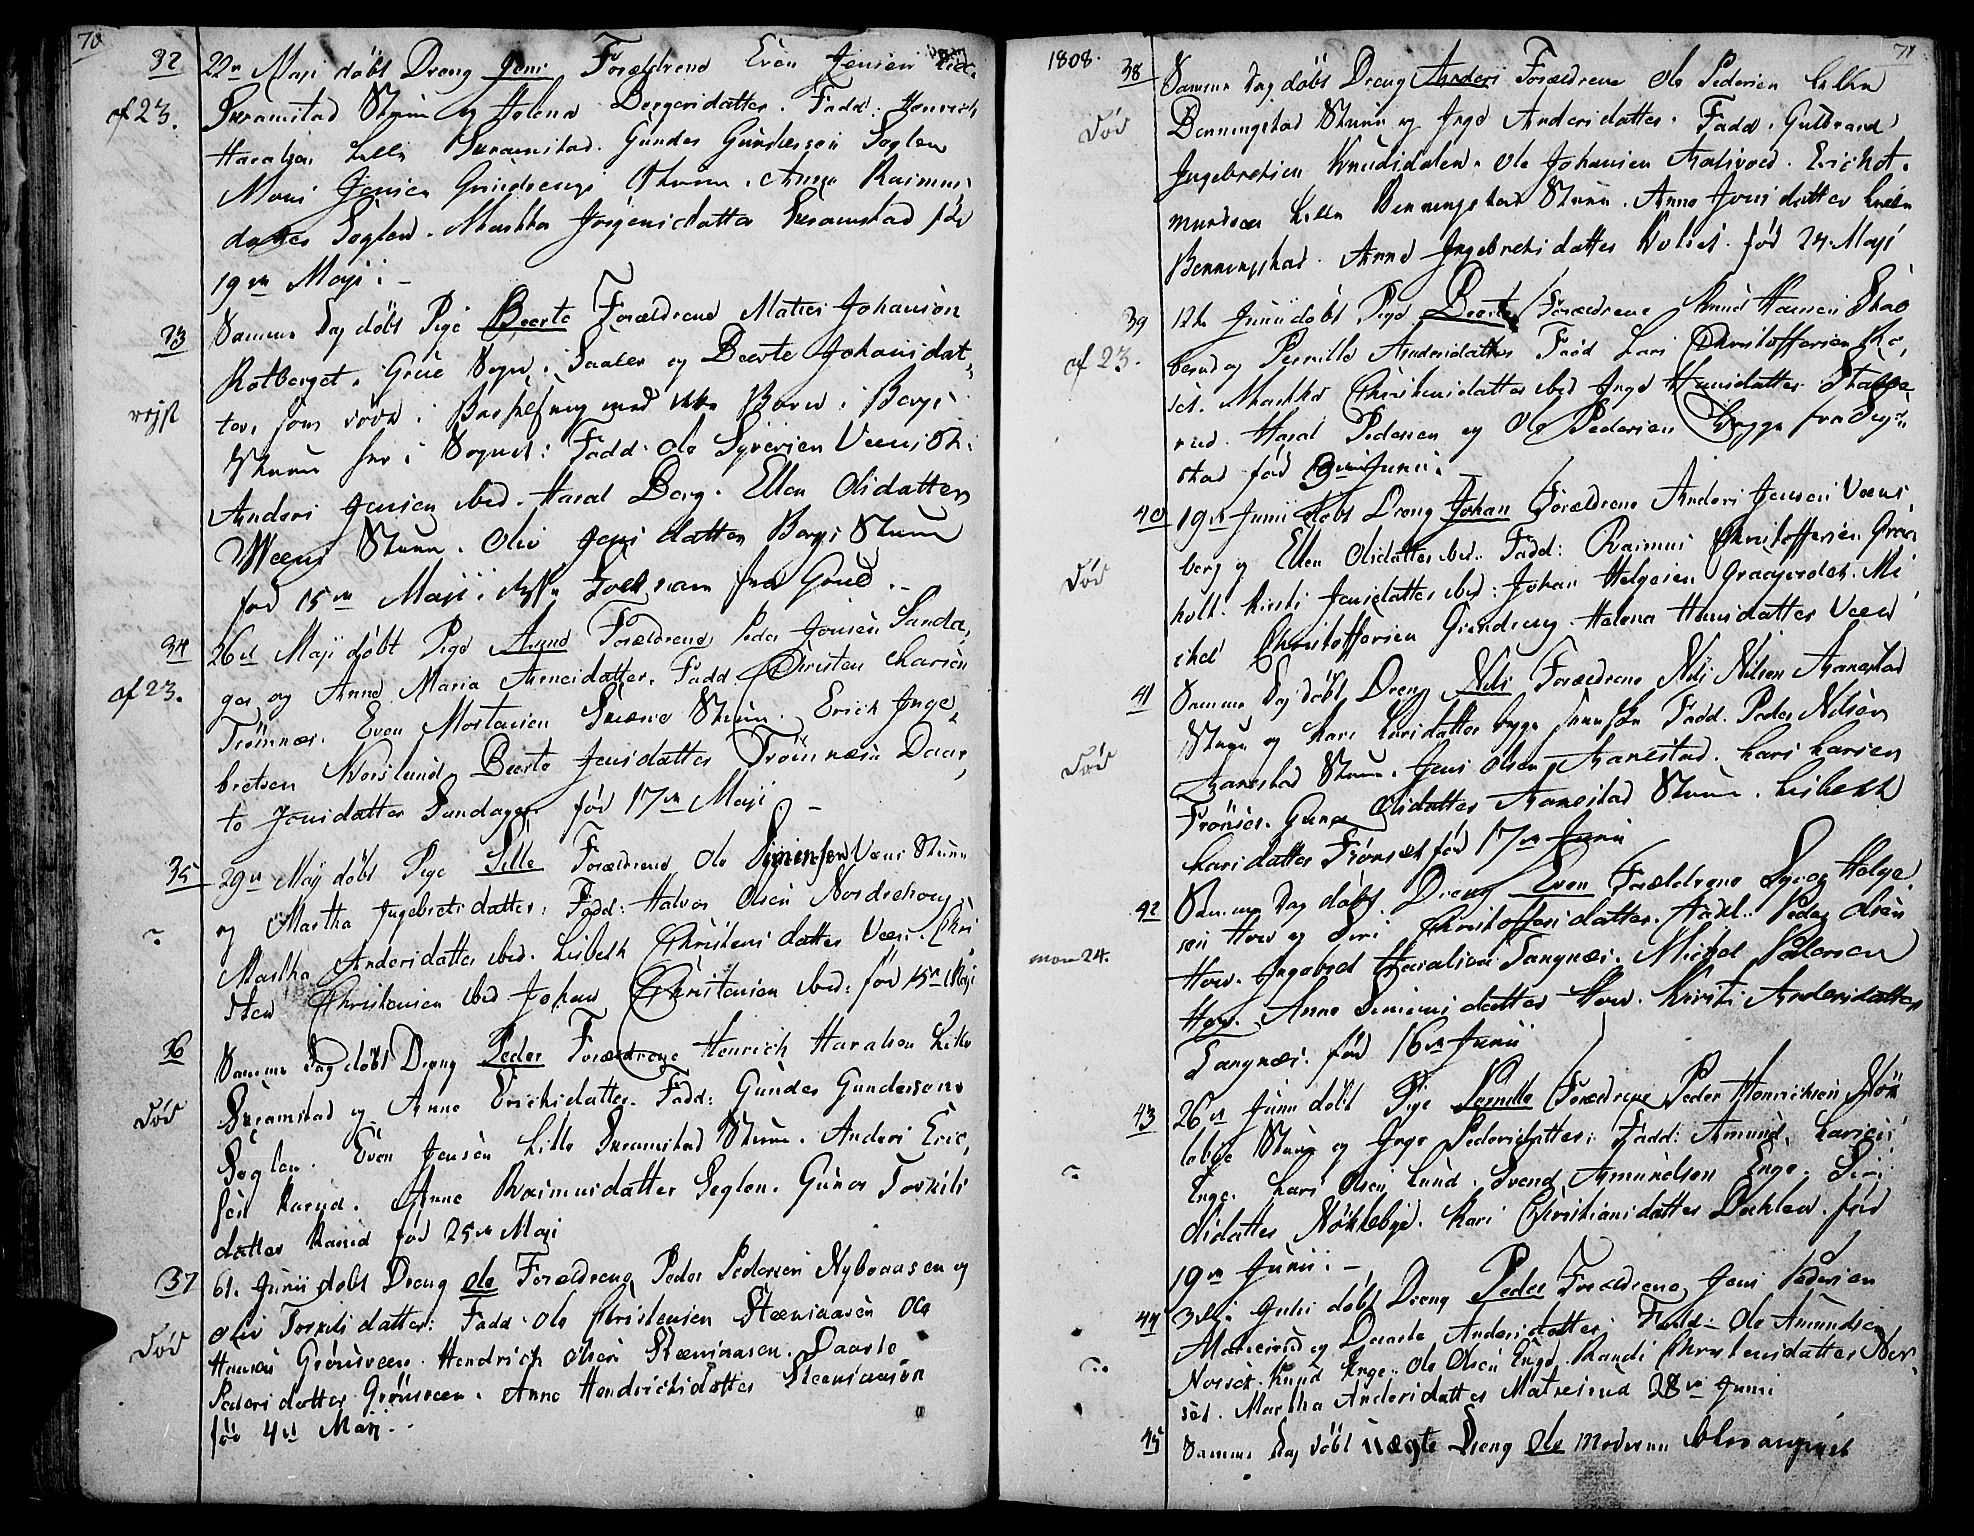 70
32
22de Maji döbt Dreng Jens Forældrene Even Jensen
af 23.
Sxramstad Stuen og Helena Bergersdatter. Fadd: Henrich
Haralsen Lille Sxramstad. Gunder Gundersen Seglen
Mons Jensen Grindvengs Stuen. Anne Rasmus
datter Seglen. Martha Jörgensdatter Sxramstad föd
19de Maji.
33
Samme Dag döbt Pige Beerte Forældrene Maties Johansön
Rotberget, Grue Sogn i Soelöer og Beerte Johansdat
röjst
ter, som vare i med Barn i Berg
Stuen her i Sognet: Fadd: Ole Syversen Veens St:
Anders Jensen ibid. Haral Berg. Ellen Olsdatter
Weens Stuen. Oliv Jensdatter Bergs Stuen
föd 15de Maji. disse Folk ere fra Grue.
34
26de Maji döbt Pige Anne Forældrene Peder Jonsen Sanda
af 23.
ger og Anne Maria Arnesdatter. Fadd. Christen Larsen
Trömnæs. Even Mortensen Stuen. Erich Inge
bretsen Korslund, Beerte Jensdatter Trömnæs Daar
te Jensdatter Sandager föd 17de Maji
35
29de Maij döbt Pige Sille Forældrene Ole Simensen Veens Stuen
og Martha Ingebretsdatter. Fadd: Halvor Olsen Nordrehoug
Martha Andersdatter ibid. Lisbeth Christensdatter Veen. Chri
sten Christensen ibid Johan Christensen ibid: föd 15de Maji
36
Samme Dag döbt Dreng Peder Forældrene Henrich Haralsen Lille
Död
Sxramstad og Anne Erichsdatter. Fadd: Gunder Gundersen
Seglen. Even Jensen Lille Sxramstad Stuen. Anders Eric
sen Anne Rasmusdatter Seglen. Guner Torkils
datter föd 25de Maji
37
6te Junii döbt Dreng Ole Forældrene Peder Pedersen Nybraaten og
Död
Oliv Torkilsdatter: Fadd: Ole Christensen Steensaasen Ole
Hansen Grönsveen. Hendrich Olsen Steensaasen. Daarte
Pedersdatter Grönsveen. Anne Hendrichsdatter Steensaasen
föd 4de Maji.
1808.
71
38
Samme Dag döbt Dreng Anders Forældrene Ole Pedersen Lille
Död
Benningstad Stuen og Inge Andersdatter. Fadd. Gulbrand
Ingebretsen Knudsdalen. Ole Johansen. Erich
mundsen Lille Benningstad Stuen. Anne Jonsdatter Lille
Benningstad. Anne Ingebretsdatter föd 24 Maji
39
12te Junii döbt Pige Beerte Forældrene Knud Hansen
af 23.
og Pernille Andersdatter Fadd Lars Christoffersen
Martha Christensdatter ibid Inge Hansdatter
rud. Haral Pedersen og Ole Pedersen Bygge fra
stad föd 3die Junii.
40
19de Junii döbt Dreng Johan Forældrene Anders Jensen Veens
Död
berg og Ellen Olsdatter ibid. Fadd: Rasmus Christoffersen
holt. Kirsti Jensdatter ibid: Johan Helgesen Graagerdet. Mi
chel Christoffersen Grindeng Helena Hansdatter Veen
41
Samme Dag döbt Dreng Nils Forældrene Nils Nilsen Aanestad
Död
Stuen og Kari Larsdatter Fadd. Peder Nilsen
Aanestad Stuen. Jens Olsen Aanestad. Lars Larsen
Frönset. Guner Olsdatter Aanestad Stuen. Lisbeth
Larsdatter Frönset föd 17de Junii
42
Samme Dag döbt Dreng Even Forældrene Syver Helge
mon 24.
sen Hov og Siri Christoffersdatter. Fadd: Peder Olsen
Hov. Ingebret Haralsen Tangnæs. Michel Pedersen
Hov. Anne Simensdatter Hov. Kirsti Andersdatter
Tangnæs. föd 16de Junii
43
26de Junii döbt Pige Pernille Forældrene Peder Henrichsen Nök
lebye Stuen og Inge Pedersdatter. Fadd: Amund Larsen
Enge. Lars Olsen Lund. Svend Amundsen Enge. Siri
Olsdatter Nöklebye. Kari Christiansdatter Dahlen. föd
19de Junii.
44
3die Julii döbt Dreng Peder Forældrene Jens Pedersen
Matiesrud og Daarte Andersdatter. Fadd: Ole Amundsen
Norset. Knud Enge. Ole Olsen Enge. Randi Christensdatter Nor
set. Martha Andersdatter Matiesrud 28de Junii
45
Samme Dag döbt uægte Dreng Ole Moderen